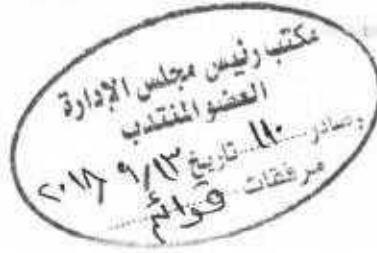 مكتب رئيس مجلس الإدارة
العضو المنتدب
صادر ١١٠ تاريخ ٩/١٣/ ٢٠١٨
مرفقات قوائم